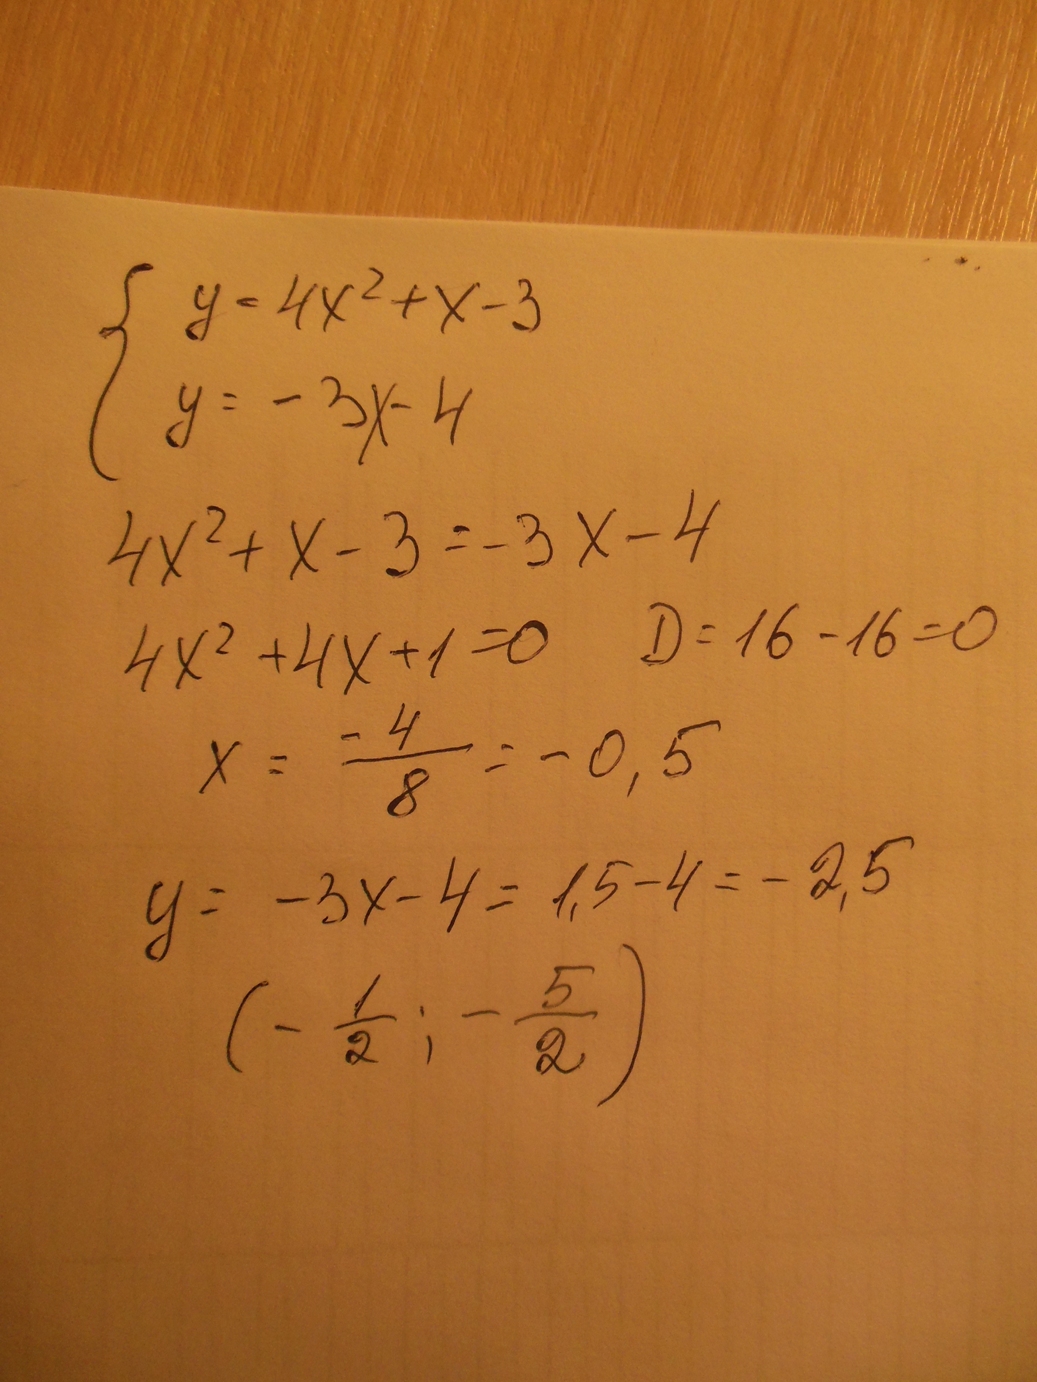 { y = 4x² + x - 3
y = - 3x - 4
4x² + x - 3 = - 3x - 4
4x² + 4x + 1 = 0 D = 16 - 16 = 0
x = -4/8 = - 0,5
y = - 3x - 4 = 1,5 - 4 = - 2,5
(- 1/2 ; - 5/2)